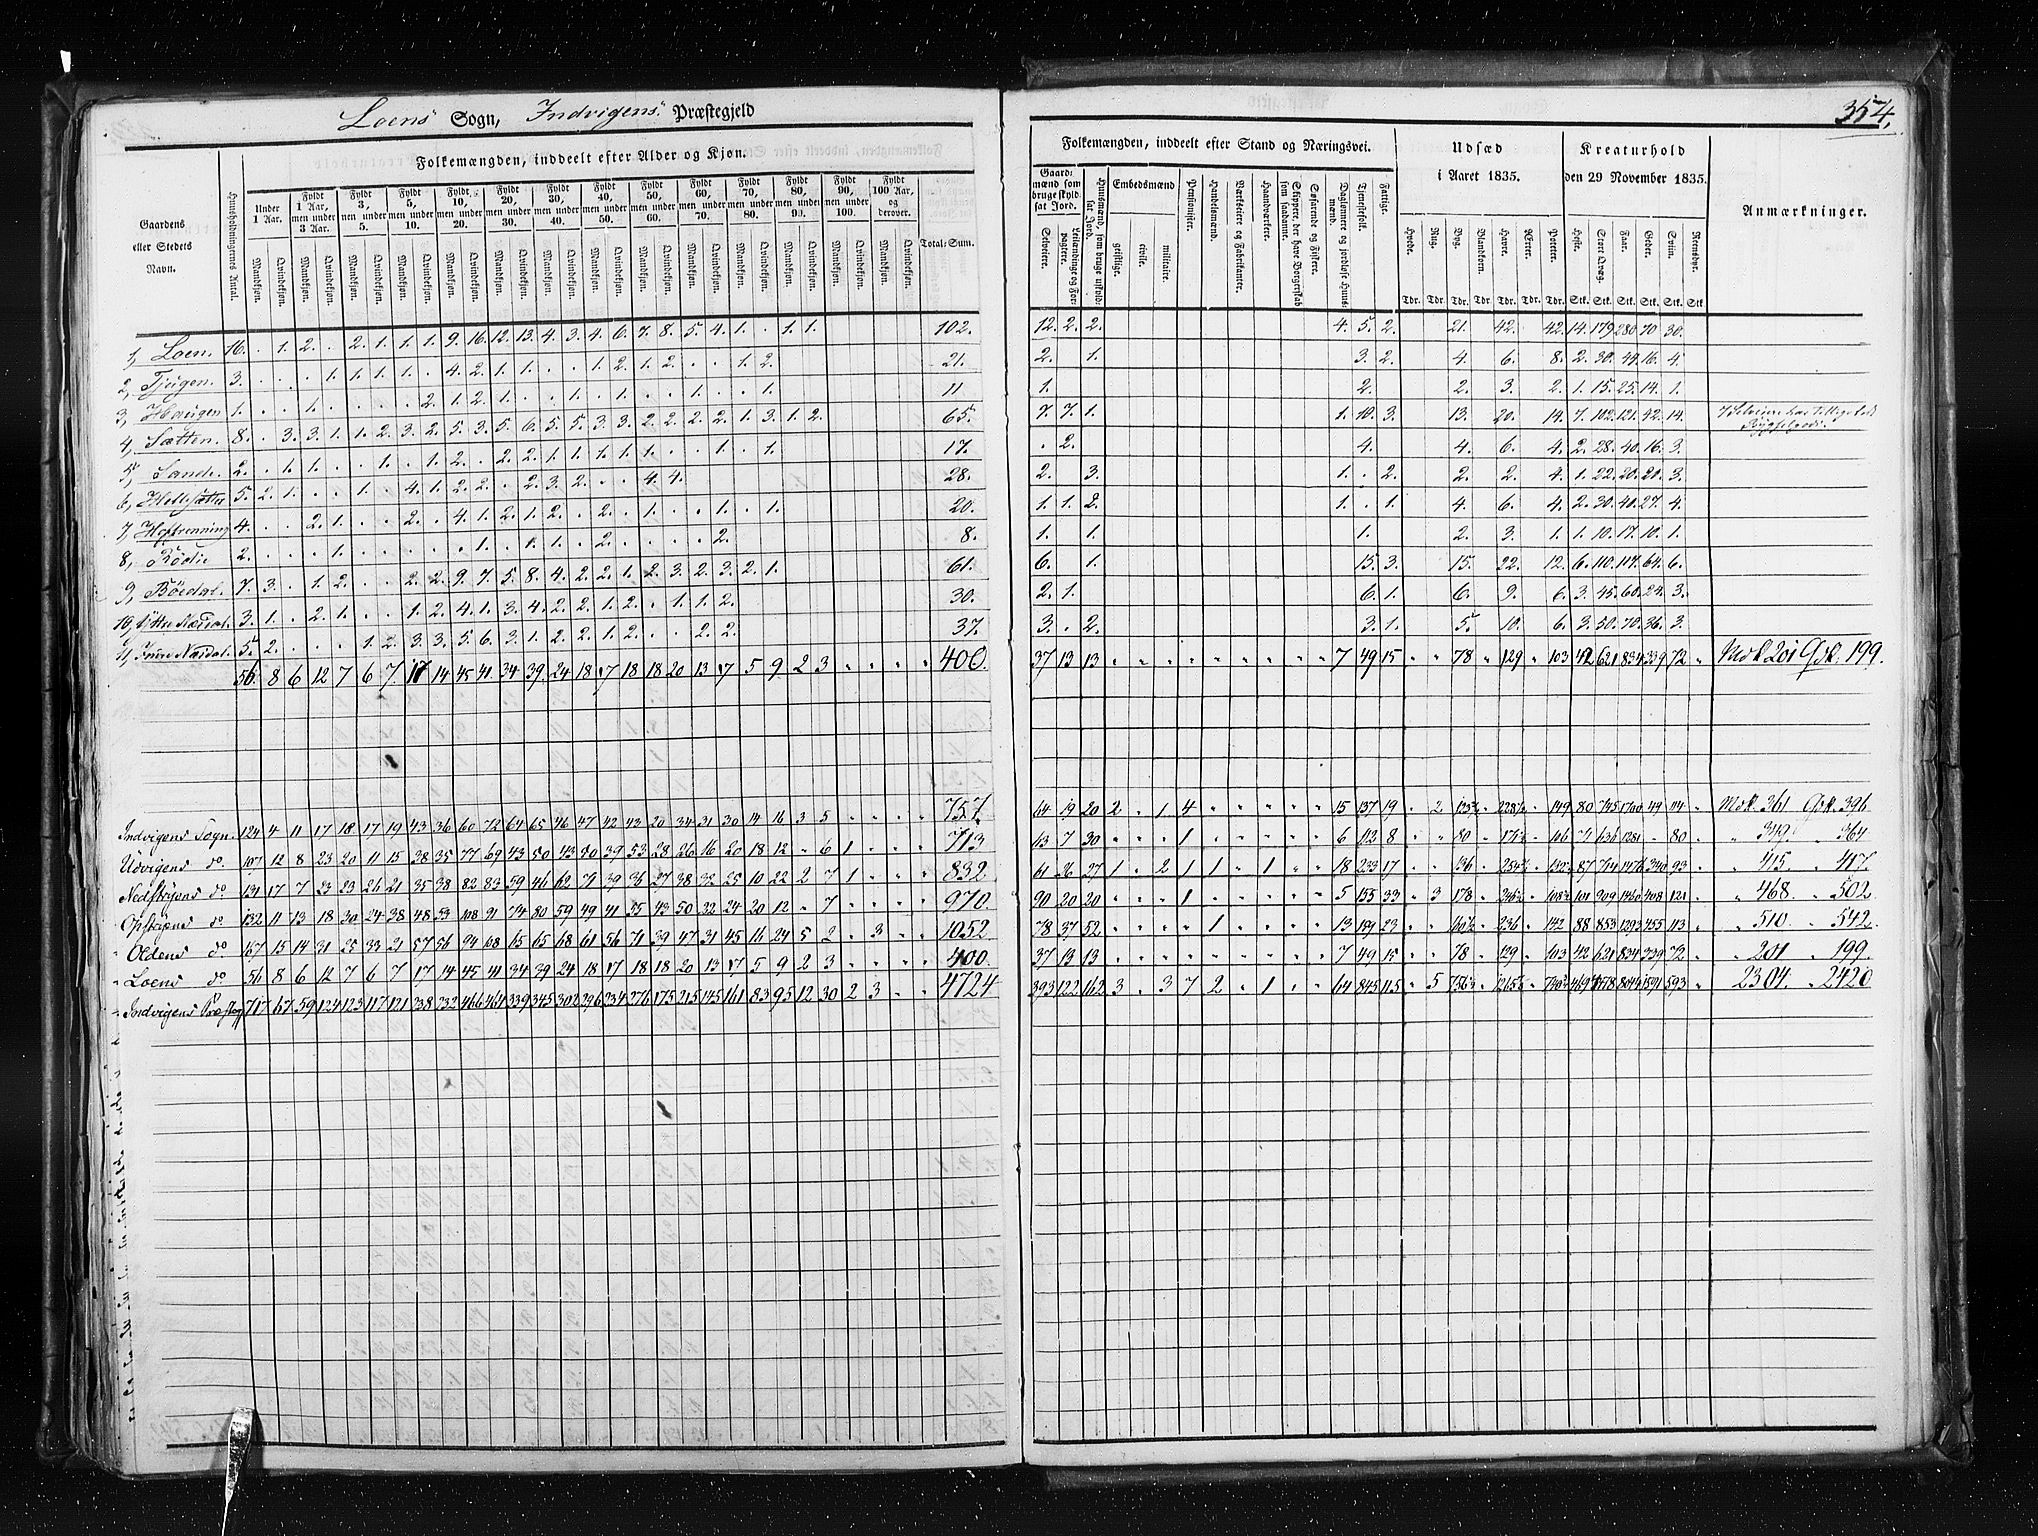 Loens Sogn, Indvigens Præstegjeld
354,
Folkemængden, inddeelt efter Alder og Kjøn.
Gaardens eller Stedets Navn.
Huusholdningernes Antal.
Under 1 Aar.
Fyldt 1 Aar, men under 3 Aar.
Fyldt 3, men under 5.
Fyldt 5, men under 10.
Fyldt 10, men under 20.
Fyldt 20, men under 30.
Fyldt 30, men under 40.
Fyldt 40, men under 50.
Fyldt 50, men under 60.
Fyldt 60, men under 70.
Fyldt 70, men under 80.
Fyldt 80, men under 90.
Fyldt 90, men under 100.
Fyldt 100 Aar, og derover.
Mandkjøn. Qvindekjøn.
Total-Sum.
Folkemængden, inddeelt efter Stand og Næringsvei.
Gaardmænd som bruge skyldsat Jord.
Selveiere.
Leilændinge og Forpagtere.
Huusmænd, som bruge uskyldsat Jord.
Embedsmænd
geistlige.
civile.
militaire.
Pensionister.
Handelsmænd.
Værkseiere og Fabrikanter.
Haandværkere.
Skippere, der have Borgerskab som saadanne.
Søfarende og Fiskere.
Daglønnere og jordløse Huusmænd.
Tjenestefolk.
Fattige.
Udsæd i Aaret 1835.
Hvede. Rug. Byg. Blandkorn. Havre. Ærter. Poteter.
Tdr. Tdr. Tdr. Tdr. Tdr. Tdr. Tdr.
Kreaturhold den 29 November 1835.
Heste. Stort Qvæg. Faar. Geder. Sviin. Rensdyr.
Stk. Stk. Stk. Stk. Stk. Stk.
Anmærkninger.
1, Loen. 16. . 1. 2. . 2. 1. 1. 1. 9. 16. 12. 13. 4. 3. 4. 6. 7. 8. 5. 4. 1. . 1. 1. 102. 12. 2. 2. 4. 5. 2. 21. 42. 42. 14. 179. 280. 70. 30.
2, Tjugen. 3. . . . 1. 1. 1. 1. . 4. 2. 1. 1. . . 1. 2. 1. 2. . . 1. 2. 21. 2. 1. 3. 2. 4. 6. 8. 2. 30. 44. 16. 4.
3, Haugen 1. . . 1. . . . . 2. 1. 2. 1. . . 1. . 1. . . 1. . . 1. 11 1. 2. 2. 3. 2. 1. 15. 25. 14. 1.
4, Sætten. 8. . 3. 3. 1. 1. 2. 3. 2. 5. 3. 5. 6. 5. 5. 3. 3. 2. 2. 2. 2. 1. 3. 1. 2. 65. 7. 7. 1. 1. 10. 3. 13. 20. 14. 7. 102. 121. 42. 14.
5, Sande. 2. . 1. 1. . . 1. . 1. 2. . 2. 2. 1. 1. 1. 1. 1. . . 1. . 1. 17. . 2. 4. 4. 6. 4. 2. 28. 40. 16. 3.
6, 5. 2. 1. . . 1. . 4. 1. 2. 2. . 2. 3. 2. . . 4. 4. 28. 2. 3. 1. . 2. 2. 2. 4. 1. 22. 20. 20. 3.
7, 4. . . 2. 1. . . 2. . 4. 1. 2. 1. 2. . 2. . 1. . . 1. . 1. 20. 1. 1. 2. 1. . 1. 4. 6. 4. 2. 30. 40. 27. 4.
8, Rödie 2. . . . 1. . . . . . 1. . 1. 1. . 2. . . . . 2. 8. 1. 1. 1. 2. 3. 1. 1. 10. 17. 10. 1.
9, Böedal. 7. 3. . 1. 2. . . 2. 2. 9. 7. 5. 8. 4. 2. 2. 1. 2. 3. 2. 3. 2. 1. 61. 6. 1. 15. 3. 15. 22. 12. 6. 110. 117. 64. 6.
10, Ytter Næsdal. 3. 1. . 2. 1. . . 1. 2. 4. 1. 3. 4. 2. 2. 1. 2. . 1. 1. 2. 30. 2. 1. 6. 1. 6. 9. 6. 3. 45. 60. 24. 3.
11, Indre Næsdal. 5. 2. . . . 1. 2. 3. 3. 5. 6. 3. 1. 2. 2. 1. 2. . . 2. 2. 37. 3. . 2. 3. 1. 5. 10. 6. 3. 50. 70. 36. 3.
56. 8 6 12 7 6 7 17 14 45 41 34 39 24 18 17 18 18 20 13 17 5 9 2 3 400. 37 13 13 7 49 15 78 129 103 42 621 834 339 72 Mdk 201 Qdk. 199.
Indvigens Sogn. 124 4 11 17 18 17 19 43 36 60 72 64 65 46 47 42 43 20 34 31 30 14 16 3 5 757 44 19 20 2 1 4 15 137 19 2 149 80 49 114 Mdk. 361 Qdk. 396.
Udvigens do. 107 12 8 23 20 11 15 38 35 77 69 43 50 43 50 39 53 28 26 16 20 18 12 6 1 713 13 7 30 1 6 112 8 80 106 71 636 1281 80 349 364
Nedstryns do 131 17 7 23 23 26 21 35 38 82 83 59 46 62 79 39 36 27 38 32 25 10 22 2 7 1 832. 61 26 27 1 2 1 1 1 18 233 17 136 87 714 1476 340 93 415 417.
Opstryns do 132 11 13 18 30 24 38 48 53 108 91 74 80 59 49 41 55 43 50 32 24 20 12 7 970. 90 20 20 1 5 155 33 3 178 101 909 1460 408 121 468. 502.
Oldens do. 167 15 14 31 25 33 21 57 56 94 68 65 65 68 61 56 71 39 47 31 45 16 24 5 2 3 1052. 78 37 52 1 13 159 23 236 142 88 853 1293 455 113 510. 542.
Loens do 56 8 6 12 7 6 7 17 14 45 41 34 39 24 18 17 18 18 20 13 17 5 9 2 3 400. 37 13 13 7 49 15 78 129 103 42 621 834 339 72 201 199.
Indvigens Præstegj 717 67 59 124 123 117 121 238 232 466 464 339 345 302 296 234 276 175 215 145 161 83 95 12 30 2 3 4724 393 122 162 3 3 7 2 1 64 845 115 5 593 2304. 2420